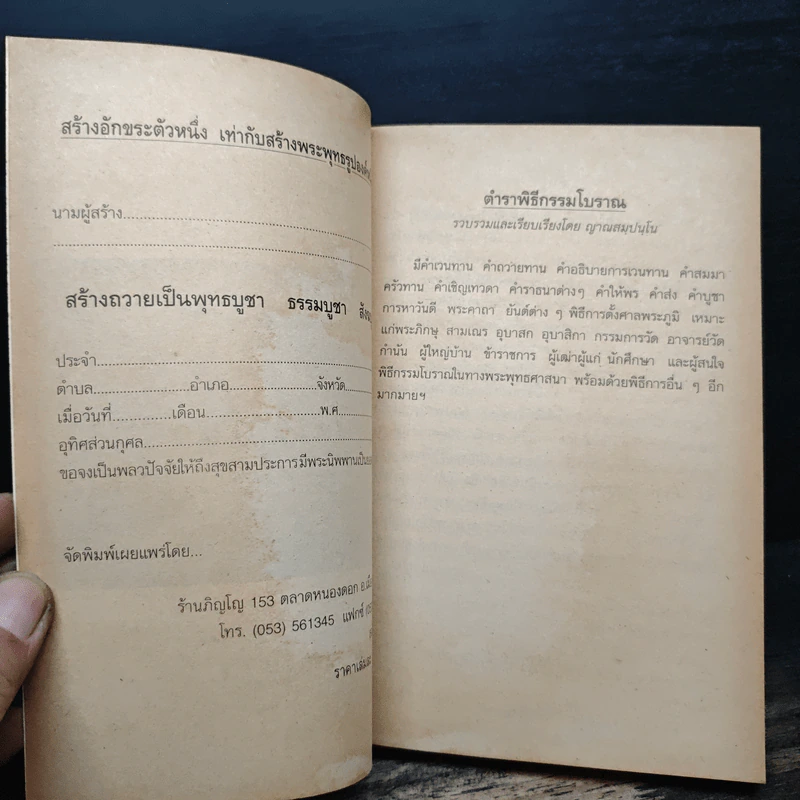 สร้างอักขระตัวหนึ่ง เท่ากับสร้างพระพุทธรูปองค์
นามผู้สร้าง
สร้างถวายเป็นพุทธบูชา ธรรมบูชา
ประจำ
ตำบล อำเภอ จังหวัด
เมื่อวันที่ เดือน พ.ศ.
อุทิศส่วนกุศล
ขอจงเป็นพลวปัจจัยให้ถึงสุขสามประการมีพระนิพพานเป็น
จัดพิมพ์เผยแพร่โดย...
ร้านภิญโญ 153 ตลาดหนองดอก อ.เมือ
โทร. (053) 561345 แฟกซ์
ราคาเล่ม
ตำราพิธีกรรมโบราณ
รวบรวมและเรียบเรียงโดย ญาณสมฺปนฺโน
มีคำเวนทาน คำถวายทาน คำอธิบายการเวนทาน คำสมมา
ครัวทาน คำเชิญเทวดา คำราธนาต่างๆ คำให้พร คำส่ง คำบูชา
การหาวันดี พระคาถา ยันต์ต่าง ๆ พิธีการตั้งศาลพระภูมิ เหมาะ
แก่พระภิกษุ สามเณร อุบาสก อุบาสิกา กรรมการวัด อาจารย์วัด
กำนัน ผู้ใหญ่บ้าน ข้าราชการ ผู้เฒ่าผู้แก่ นักศึกษา และผู้สนใจ
พิธีกรรมโบราณในทางพระพุทธศาสนา พร้อมด้วยพิธีการอื่น ๆ อีก
มากมายฯ